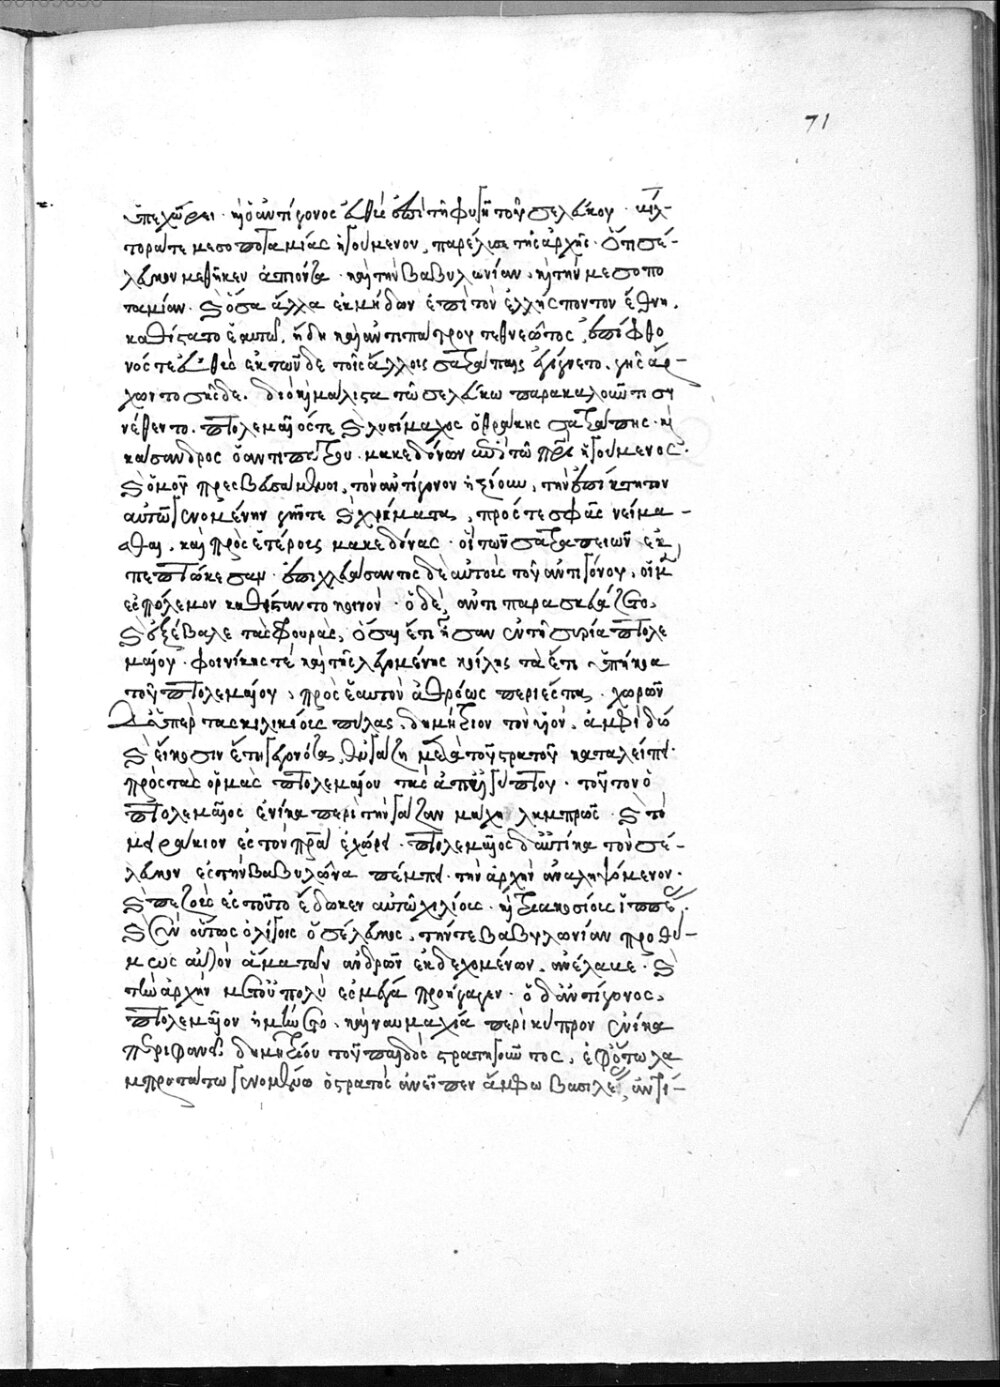 71
ὑπεχώρει. καὶ ὁ ἀντίγονος εὐθὺς ἐπὶ τῇ φυγῇ τοῦ σελεύκου. βλί-
τορά τε μεσοποταμίας ἡγούμενον, παρέλυσε τῆς ἀρχῆς. ὅτι σέ-
λευκον μεθῆκεν ἀπιόντα. καὶ τὴν βαβυλωνίαν, καὶ τὴν μεσοπο
ταμίαν. καὶ ὅσα ἄλλα ἐκ μήδων ἐπὶ τὸν ἑλλήσποντον ἔθνη.
καθίστατο ἑαυτῷ, ἤδη καὶ ἀντιπάτρου τεθνεῶτος, ἐπίφθο
νός τε εὐθὺς ἐκ τῶνδε τοῖς ἄλλοις σατράπαις ἐγίγνετο. γῆς ἄρ-
χων τοσῆσδε. διὸ καὶ μάλιστα τῷ σελεύκῳ παρακαλοῦντι συ
νέθεντο. πτολεμαῖός τε καὶ λυσίμαχος ὁ θράκης σατράπης. καὶ
κάσανδρος ὁ ἀντιπάτρου. μακεδόνων ἐπὶ τῷ πατρὶ ἡγούμενος.
καὶ ὁμοῦ πρεσβευσάμενοι, τὸν ἀντίγονον ἠξίουν, τὴν ἐπίκτητον
αὐτῷ γενομένην γῆν τε καὶ χρήματα, πρός τε σφᾶς νείμα-
σθαι. καὶ πρὸς ἑτέρους μακεδόνας. οἳ τῶν σατραπειῶν ἐκ
πεπτώκεσαν. ἐπιχλευάσαντος δὲ αὐτοὺς τοῦ ἀντιγόνου, οἱ μὲν
ἐς πόλεμον καθίσταντο κοινόν. ὁ δὲ, ἀντιπαρεσκευάζετο.
καὶ ἐξέβαλε τὰς φρουρὰς, ὅσαι ἔτι ἦσαν ἐν τῇ συρίᾳ πτολε
μαίου. φοινίκης τε καὶ τῆς λεγομένης κοίλης τὰ ἔτι ὑπήκοα
τοῦ πτολεμαίου, πρὸς ἑαυτὸν ἀθρόως περιέσπα. χωρῶν
δὲ ὑπὲρ τὰς κιλικίους πύλας, δημήτριον τὸν υἱὸν, ἀμφὶ δύο
καὶ εἴκοσιν ἔτη γεγονότα, ἐν γάζῃ μετὰ τοῦ στρατοῦ καταλείπει.
πρὸς τὰς ὁρμὰς πτολεμαίου τὰς ἀπ᾽ αἰγύπτου. τοῦτον ὁ
πτολεμαῖος ἐνίκα περὶ τὴν γάζαν μάχῃ λαμπρῶς. καὶ τὸ
μειράκιον ἐς τὸν πατέρα ἐχώρει. πτολεμαῖος δ᾽ αὐτίκα τὸν σέ-
λευκον ἐς τὴν βαβυλῶνα πέμπει. τὴν ἀρχὴν ἀναληψόμενον.
καὶ πεζοὺς ἐς τοῦτο ἔδωκεν αὐτῷ χιλίους. καὶ τριακοσίους ἱππέας.
καὶ σὺν οὕτως ὀλίγοις ὁ σέλευκος, τήν τε βαβυλωνίαν προθύ-
μως αὐτὸν ἅμα τῶν ἀνδρῶν ἐκδεχομένων, ἀνέλαβε. καὶ
τὴν ἀρχὴν μετ᾽ οὐ πολὺ ἐς μέγα προήγαγεν. ὁ δ᾽ ἀντίγονος,
πτολεμαῖον ἠμύνετο. καὶ ναυμαχίᾳ περὶ κύπρον ἐνίκα
περιφανεῖ, δημητρίου τοῦ παιδὸς στρατηγοῦντος. ἐφ᾽ ὅτῳ λα
μπροτάτῳ γενομένῳ ὁ στρατὸς ἀνεῖπεν ἄμφω βασιλέας, ἀντί-